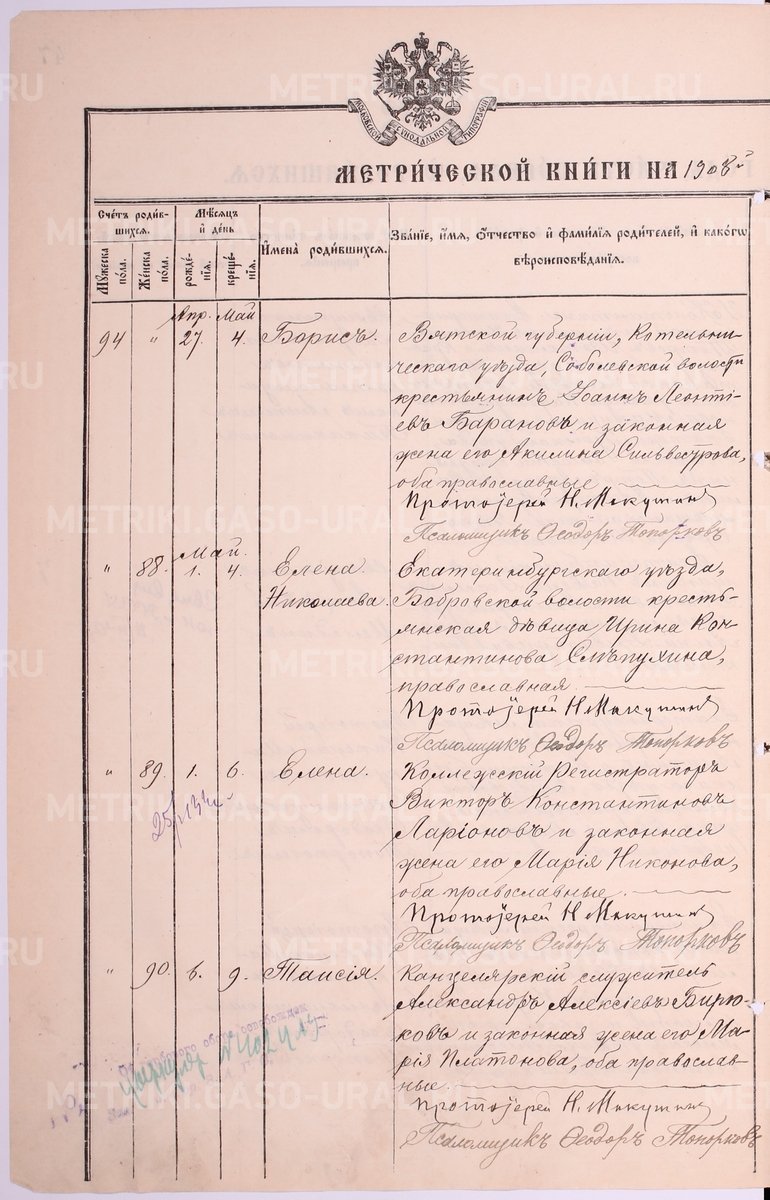 МОСКОВСКОЙ СѴНОДАЛЬНОЙ ТИПОГРАФІИ
МЕТРИ́ЧЕСКОЙ КНИ́ГИ НА 1908й
Сче́тъ роди́в-
шихся.
Мѣ́сяцъ
и́ де́нь
И҆мена̀ роди́вшихся.
Зва́нїе, и҆́мя, ѻ҆́тчество и҆ фами́лїя роди́телей, и҆ како́гѡ
вѣроисповѣ́данїя.
Мꙋ́жеска
по́ла.
Же́нска
по́ла.
рожде́-
нїѧ.
креще́-
нїѧ.
Апр. Май
94 " 27. 4. Борисъ.
Вятской губерніи, Котельни-
ческаго уѣзда, Соболевской волости
крестьянинъ Іоаннъ Леонті-
евъ Барановъ и законная
жена его Акилина Сильвестрова,
оба православные
Протоіерей Н. Макушинъ
Псаломщикъ Ѳеодоръ Топорковъ
Май.
" 88. 1. 4. Елена
Николаева.
Екатеринбургскаго уѣзда,
Бобровской волости кресть-
янская дѣвица Ирина Кон-
стантинова Слѣпухина,
православная
Протоіерей Н. Макушинъ
Псаломщикъ Ѳеодоръ Топорковъ
" 89. 1. 6. Елена.
Коллежскій Регистраторъ
Викторъ Константиновъ
Ларіоновъ и законная
жена его Марія Никонова,
оба православные.
Протоіерей Н. Макушинъ
Псаломщикъ Ѳеодоръ Топорковъ
" 90. 6. 9. Таисія.
Канцелярскій служитель
Александръ Алексіевъ Бирю-
ковъ и законная жена его Ма-
рія Платонова, оба православ-
ные.
Протоіерей Н. Макушинъ
Псаломщикъ Ѳеодоръ Топорковъ
METRIKI.GASO-URAL.RU